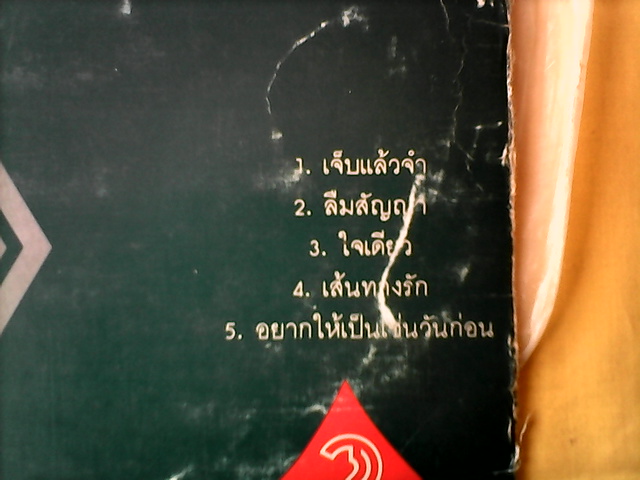 1. เจ็บแล้วจำ
2. ลืมสัญญา
3. ใจเดียว
4. เส้นทางรัก
5. อยากให้เป็นเช่นวันก่อน